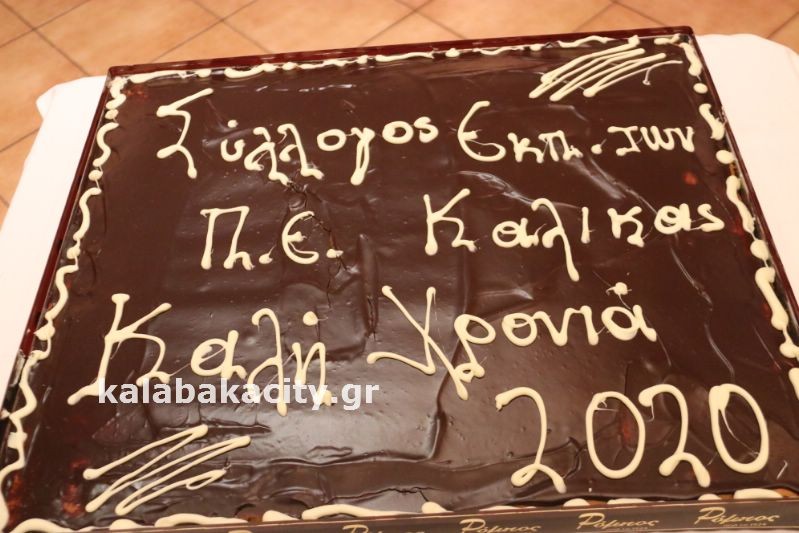 Σύλλογος Εκπ. των
Π.Ε. Καλ/κας
Καλή Χρονιά
2020
kalabakacity.gr
Ρόμπος Ρόμπος Ρόμπος